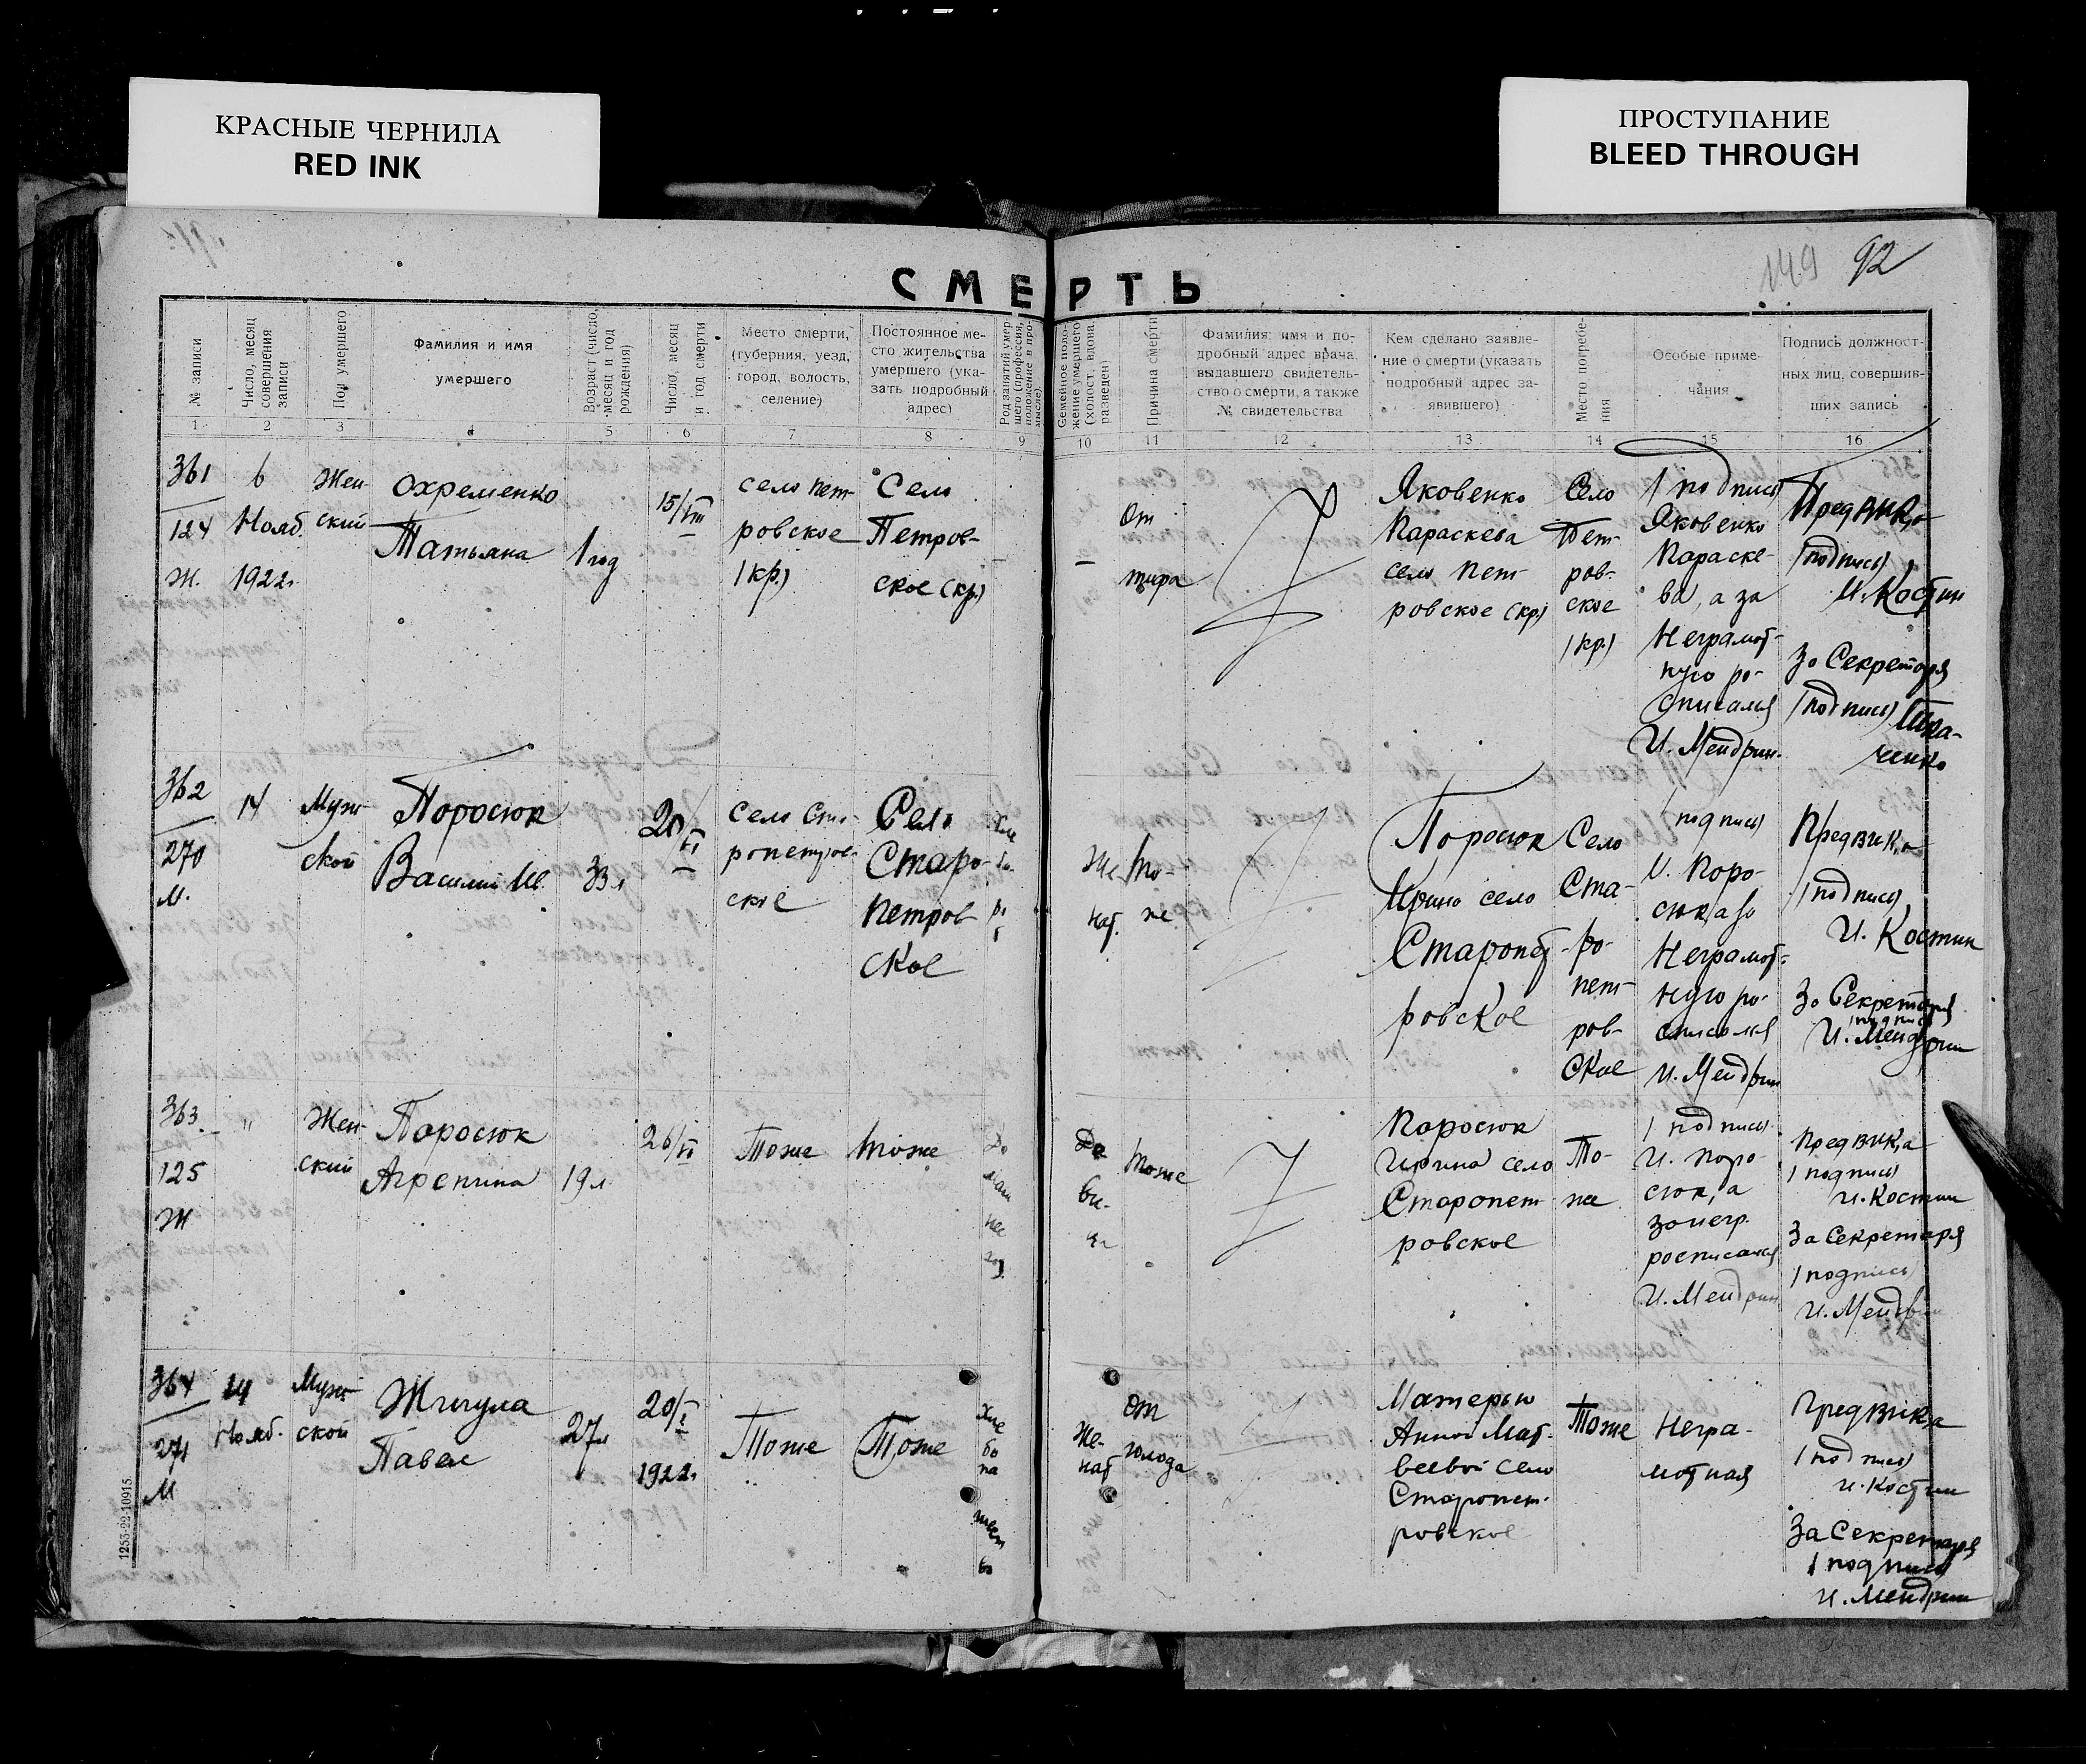 КРАСНЫЕ ЧЕРНИЛА
RED INK
ПРОСТУПАНИЕ
BLEED THROUGH
149 92
СМЕРТЬ
№ записи
Число, месяц
совершения
записи
Пол умершего
Фамилия и имя
умершего
Возраст (число,
месяц и год
рождения)
Число, месяц
и год смерти
Место смерти,
(губерния, уезд,
город, волость,
селение)
Постоянное ме-
сто жительства
умершего (ука-
зать подробный
адрес)
Род занятий умер-
шего (профессия,
положение в про-
мысле).
Семейное поло-
жение умершего
(холост., вдова,
разведен)
Причина смерти
Фамилия, имя и по-
дробный адрес врача,
выдавшего свидетель-
ство о смерти, а также
№ свидетельства
Кем сделано заявле-
ние о смерти (указать
подробный адрес за-
явившего)
Место погребе-
ния
Особые приме-
чания
Подпись должност-
ных лиц, совершив-
ших запись
1 2 3 4 5 6 7 8 9 10 11 12 13 14 15 16
361
124
Ж.
6
Нояб.
1922г.
Жен-
ский
Охременко
Татьяна
1 год
15/VIII
село Пет-
ровское
(кр.)
Село
Петров-
ское (кр.)
—
От
тифа
Яковенко
Параскева
село Пет-
ровское (кр.)
Село
Пет-
ров-
ское
(кр.)
(подпись)
Яковенко
Параске-
ва, а за
Неграмот-
ную ро-
списался
И. Мендрин.
ПредВИК,а
(подпись)
И. Костин
За Секретаря
(подпись) Тка-
ченко
362
270
М.
14
Муж-
ской
Поросюк
Василий Ив.
33 л
20/VI
Село Ста-
ропетров-
ское
Село
Старо-
петров
ское
Же
наг.
То-
же
Поросюк
Ирина село
Старопет-
ровское
Село
Ста-
ро-
пет-
ров-
ское
(подпись)
И. Поро-
сюк, а за
Неграмот-
ную ро-
списался
И. Мендрин
ПредВИК,а
(подпись)
И. Костин
За Секретаря
(подпись)
И. Мендрин
363
125
Ж
"
Жен-
ский
Поросюк
Агрепина
19 л.
26/VI
Тоже
Тоже
До
маш
нее
хоз.
Де
ви-
ца
Тоже
Поросюк
Ирина село
Старопет-
ровское
То-
же
(подпись)
И. Поро-
сюк, а
за негр.
росписался
И. Мендрин
ПредВИК,а
(подпись)
И. Костин
За Секретаря
(подпись)
И. Мендрин
364
271
М
14
Нояб.
Муж-
ской
Жигула
Павел
27 л
20/I
1922г.
Тоже
Тоже
Хле
бо
па
шест
во
Же-
наг
От
голода
Матерью
Анной Мат-
веевой село
Старопет-
ровское
Тоже
Негра-
мотная
ПредВИК,а
(подпись)
И. Костин
За Секретаря
(подпись)
И. Мендрин
1253-22-10915